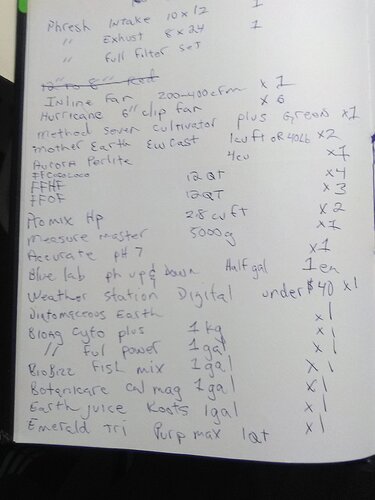 Phresh Intake 10 x 12 1
" Exhust 8 x 24 1
" Full Filter Set
12" to 8" Red
Inline Fan 200-400 cfm x 1
Hurricane 6" clip fan x 6
method seven cultivator plus Green x1
mother Earth Ew Cast 1 cuft OR 40lb x2
Aurora Perlite 4cu x1
FFCocoLoco x4
FFHF 12 QT x3
FFOF 12QT
Promix Hp 2.8 cu ft x 2
measure master 5000g x1
Accurate pH 7 x1
Blue lab ph up & down Half gal 1 en
Weather station Digital under $40 x1
Diatomaceous Earth x1
BioAg Cyto plus 1 kg x1
" Ful power 1 gal x1
BioBizz Fish mix 1 gal x1
Botanicare Cal mag 1 gal x1
Earth juice Roots 1gal x1
Emerald Tri Purp max 1 Qt x1